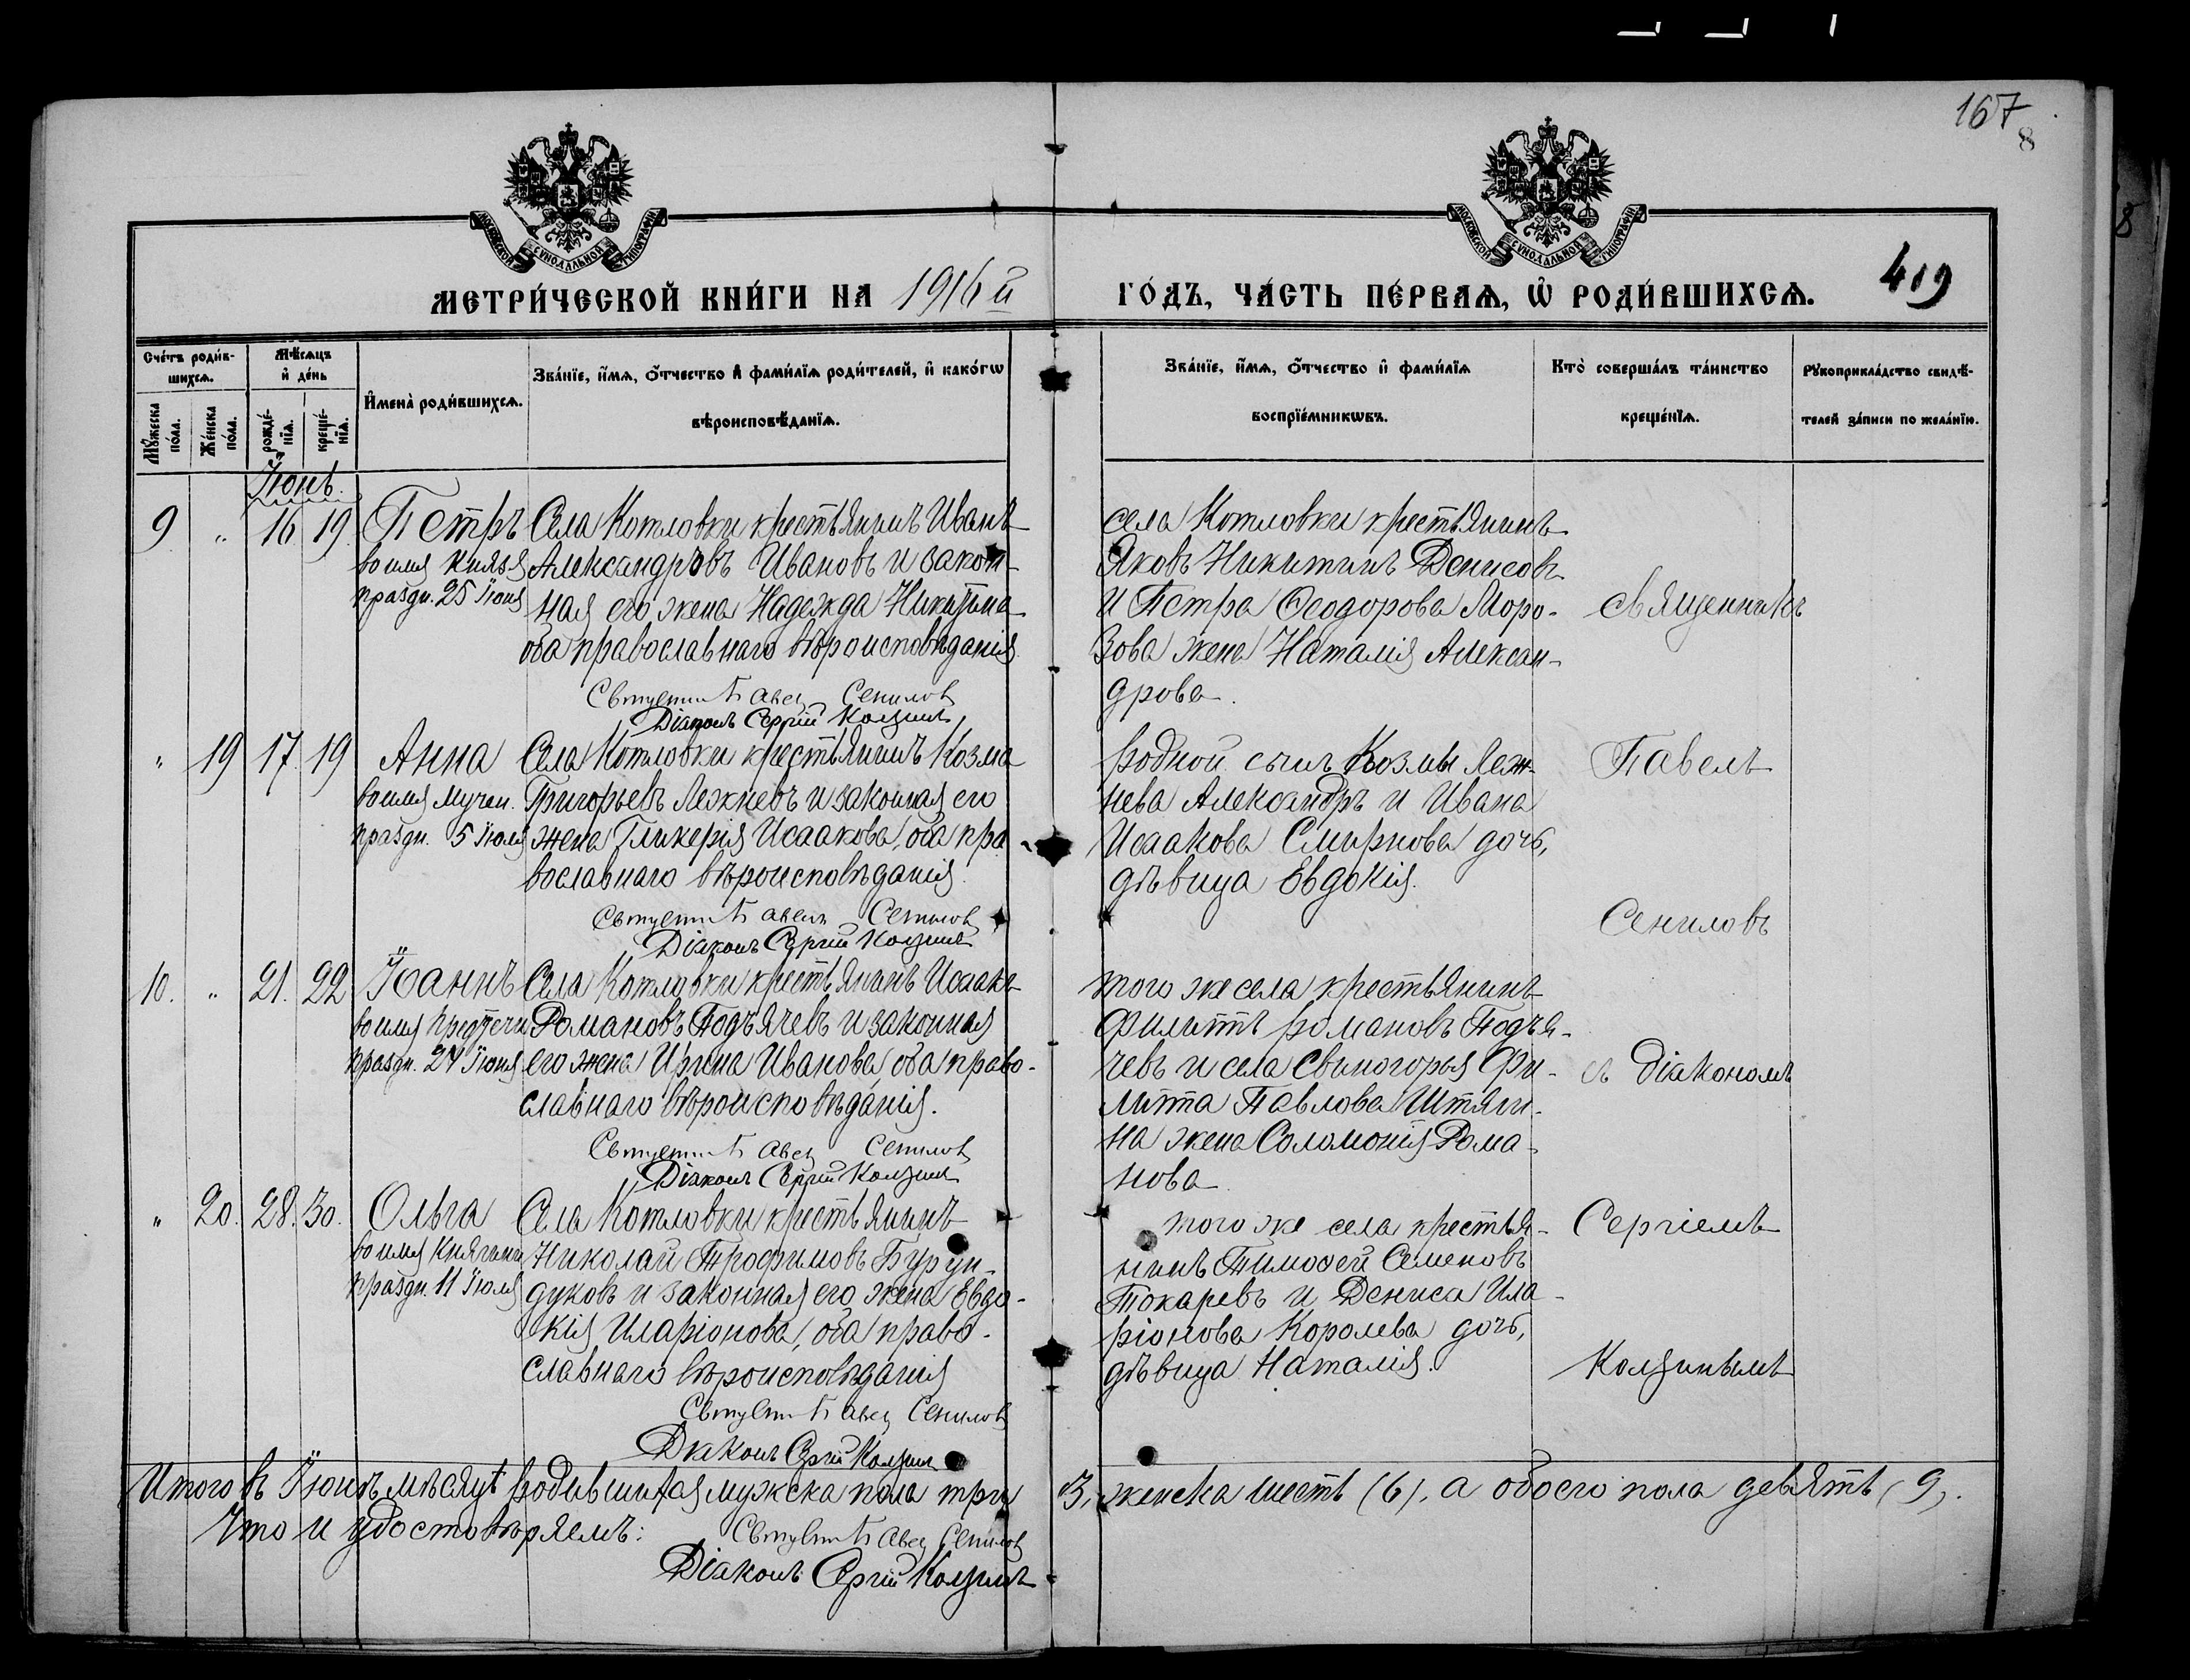 167
8
8
МОСКОВСКОЙ СѴНОДАЛЬНОЙ ТИПОГРАФІИ
МОСКОВСКОЙ СѴНОДАЛЬНОЙ ТИПОГРАФІИ
МЕТРИ́ЧЕСКОЙ КНИ́ГИ НА 1916й
ГО́ДЪ, ЧА́СТЬ ПЕ́РВАѦ, Ѡ҆ РОДИ́ВШИХСѦ.
419
Сче́тъ роди́в-
шихсѧ.
Мꙋ́жеска по́ла.
Же́нска по́ла.
Мѣ́сѧцъ
и҆ де́нь
рожде́-
нїѧ.
креще́-
нїѧ.
И҆мена̀ роди́вшихсѧ.
Зва́нїе, и҆́мѧ, ѻ҆́тчество и҆ фами́лїѧ роди́телей, и҆ како́гѡ
вѣроисповѣ́данїѧ.
Зва́нїе, и҆́мѧ, ѻ҆́тчество и҆ фами́лїѧ
воспрїе́мникѡвъ.
Кто̀ соверша́лъ та́инство
креще́нїѧ.
Рꙋкоприкла́дство свидѣ́-
телей за́писи по жела́нїю.
Іюнь.
9 " 16 19 Петръ
во имя Князя
праздн. 25 Іюня
Села Котловки крестьянинъ Иванъ
Александровъ Ивановъ и закон-
ная его жена Надежда Никитина
оба православнаго вѣроисповѣданія
Павел Сенилов
Діаконъ Сергій Колзинъ
села Котловки крестьянинъ
Яковъ Никитинъ Денисовъ
и Петра Ѳеодорова Моро-
зова жена Наталія Алексан-
дрова.
священникъ
" 19 17 19 Анна
во имя Мучен.
праздн. 5 Іюля
Села Котловки крестьянинъ Козма
Григорьевъ Лежневъ и законная его
жена Гликерія Исаакова, оба пра
вославнаго вѣроисповѣданія.
Павелъ Сенилов
Діаконъ Сергій Колзинъ
Родной сынъ Козмы Леж-
нева Александръ и Ивана
Исаакова Смирнова дочь,
дѣвица Евдокія.
Павелъ
Сениловъ
10. " 21. 22 Іоаннъ
во имя Предтечи
праздн. 24 Іюня
Села Котловки крестьянинъ Исаакъ
Романовъ Подъячевъ и законная
его жена Ирина Иванова, оба право-
славнаго вѣроисповѣданія.
Павел Сенилов
Діаконъ Сергій Колзинъ
того же села крестьянинъ
Филиппъ Романовъ Подъя-
чевъ и села Свиногорья Фи-
липпа Павлова Штяги-
на жена Соломонія Рома-
нова
съ діакономъ
" 20. 28. 30. Ольга
во имя Княгини
праздн. 11 Іюля
Села Котловки крестьянинъ
Николай Трофимовъ Бурун-
дуковъ и законная его жена Евдо-
кія Иларіонова, оба право-
славнаго вѣроисповѣданія
Павел Сенилов
Діаконъ Сергій Колзинъ
того же села крестья-
нинъ Тимоѳей Семеновъ
Токаревъ и Дениса Ила-
ріонова Королева дочь,
дѣвица Наталія.
Сергіемъ
Колзинымъ
Итого въ Іюнѣ мѣсяцѣ родившихся мужска пола три
3, женска шесть (6), а обоего пола девять (9).
Что и удостовѣряемъ:
Павел Сенилов
Діаконъ Сергій Колзинъ